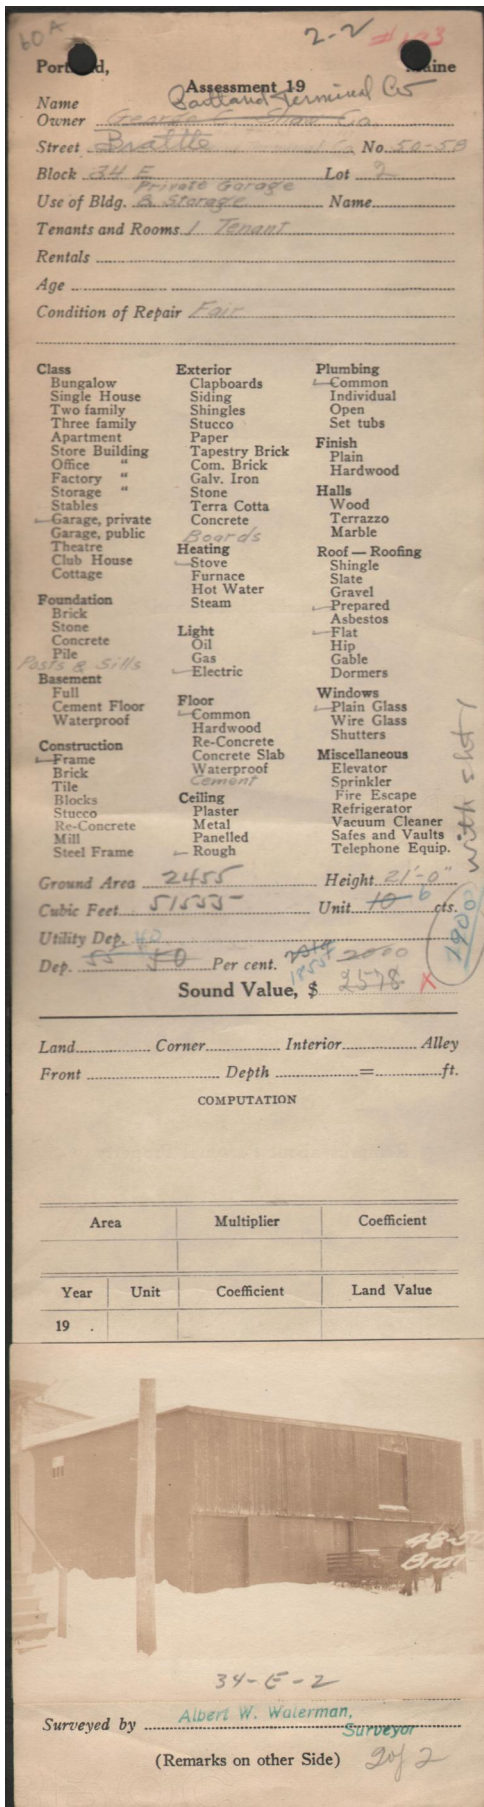 60 A
2-2 #193
Portland, Maine
Assessment 19
Name Portland Terminal Co
Owner George C. Shaw Co
Street Brattle Terminal Co No. 50-58
Block 34 E Lot 2
Private Garage
Use of Bldg. & Storage Name
Tenants and Rooms 1 Tenant
Rentals
Age
Condition of Repair Fair
Class
Bungalow
Single House
Two family
Three family
Apartment
Store Building
Office "
Factory "
Storage "
Stables
Garage, private
Garage, public
Theatre
Club House
Cottage
Foundation
Brick
Stone
Concrete
Pile
Posts & Sills
Basement
Full
Cement Floor
Waterproof
Construction
Frame
Brick
Tile
Blocks
Stucco
Re-Concrete
Mill
Steel Frame
Exterior
Clapboards
Siding
Shingles
Stucco
Paper
Tapestry Brick
Com. Brick
Galv. Iron
Stone
Terra Cotta
Concrete
Boards
Heating
Stove
Furnace
Hot Water
Steam
Light
Oil
Gas
Electric
Floor
Common
Hardwood
Re-Concrete
Concrete Slab
Waterproof
Cement
Ceiling
Plaster
Metal
Panelled
Rough
Plumbing
Common
Individual
Open
Set tubs
Finish
Plain
Hardwood
Halls
Wood
Terrazzo
Marble
Roof — Roofing
Shingle
Slate
Gravel
Prepared
Asbestos
Flat
Hip
Gable
Dormers
Windows
Plain Glass
Wire Glass
Shutters
Miscellaneous
Elevator
Sprinkler
Fire Escape
Refrigerator
Vacuum Cleaner
Safes and Vaults
Telephone Equip.
Ground Area 2455 Height 21'-0"
Cubic Feet 51555 Unit 10 6 cts.
Utility Dep. 40
Dep. 55 50 Per cent. 1855 2000
Sound Value, $ 2578 X
1900
with
Land Corner Interior Alley
Front Depth = ft.
COMPUTATION
Area Multiplier Coefficient
Year Unit Coefficient Land Value
19 .
48-5
Brat
34-E-2
Surveyed by Albert W. Waterman,
Surveyor
(Remarks on other Side) 2 of 2